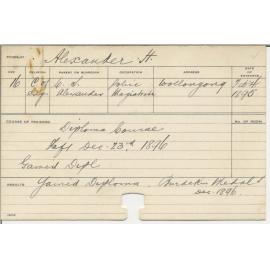 PUPIL OF Alexander H.
AGE RELIGION PARENT OR GUARDIAN OCCUPATION ADDRESS DATE OF ENTRANCE
16 C of C. S. Police Wollongong Feb
Eng. Alexander Magistrate 1895
COURSE OF TRAINING NO. OF ROOM
Diploma Course
Left Dec. 23rd 1896
Gained Dipl
RESULTS Gained Diploma. Burdekin Medal
Dec. 1896.